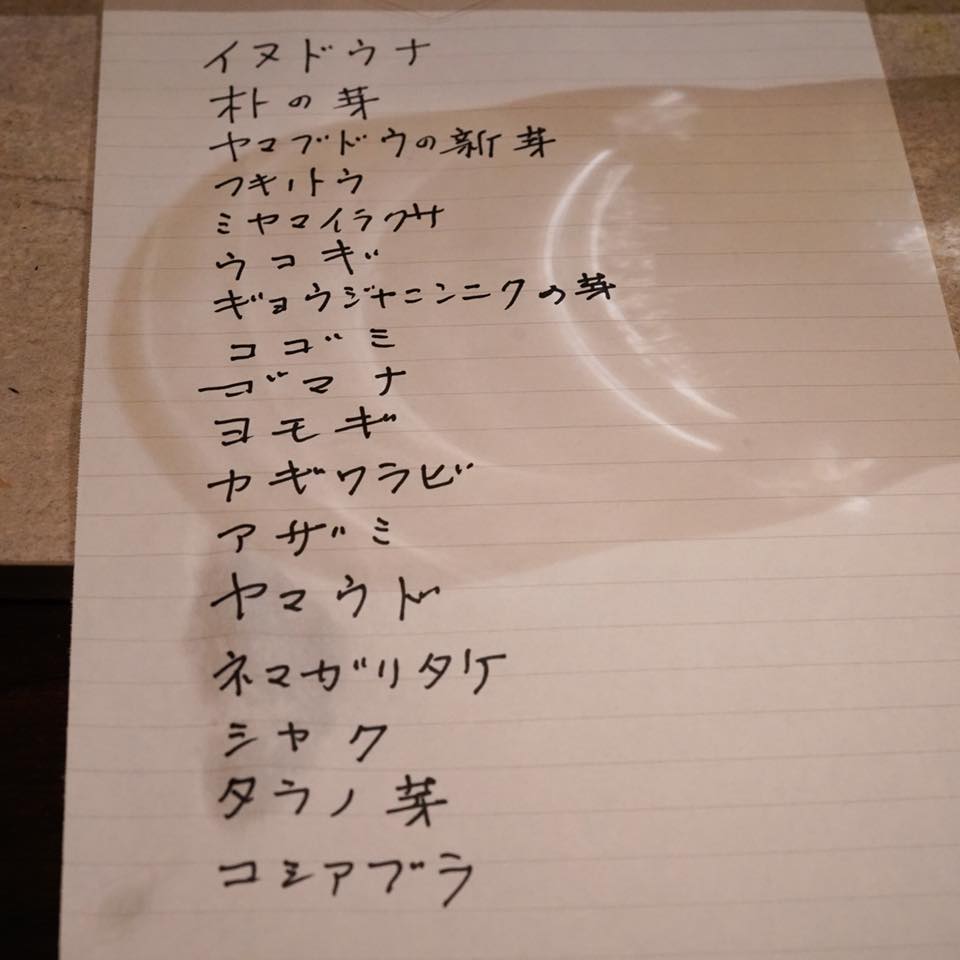 イヌドウナ
朴の芽
ヤマブドウの新芽
フキノトウ
ミヤマイラクサ
ウコギ
ギョウジャニンニクの芽
コゴミ
ゴマナ
ヨモギ
ヤギワラビ
アザミ
ヤマウド
ネマガリタケ
シャク
タラノ芽
コシアブラ